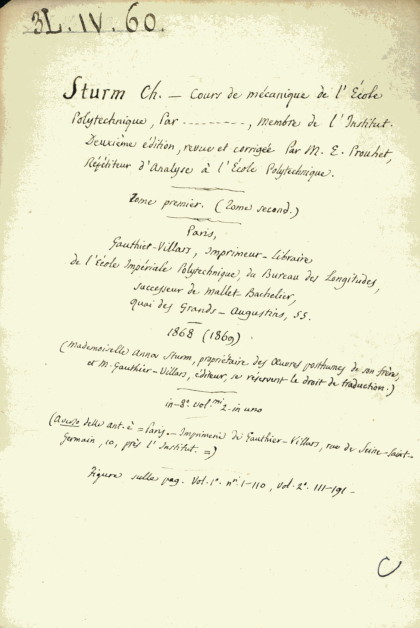 3L. IV. 60.
Sturm Ch. – Cours de mécanique de l'École
Polytechnique, Par --------, membre de l'Institut.
Deuxième édition, revue et corrigée Par M. E. Prouhet,
Répétiteur d'Analyse à l'École Polytechnique.
Tome premier. (Tome second.)
Paris,
Gauthier-Villars, Imprimeur-Libraire
de l'École Impériale Polytechnique, du Bureau des Longitudes,
successeur de Mallet Bachelier,
quai des Grands-Augustins, 55.
1868 (1869)
(Mademoiselle Anna Sturm, propriétaire des Œuvres posthumes de son frère,
et M. Gauthier-Villars, éditeur, se réservent le droit de traduction.)
in-8° vol. mi 2. in uno
(Averso delle ant. è = Paris. – Imprimerie de Gauthier-Villars, rue de Seine-Saint-
Germain, 10, près l'Institut. =)
Figure sulle pag. Vol. 1° n.i 1-110, vol. 2°. 111-191 –
C